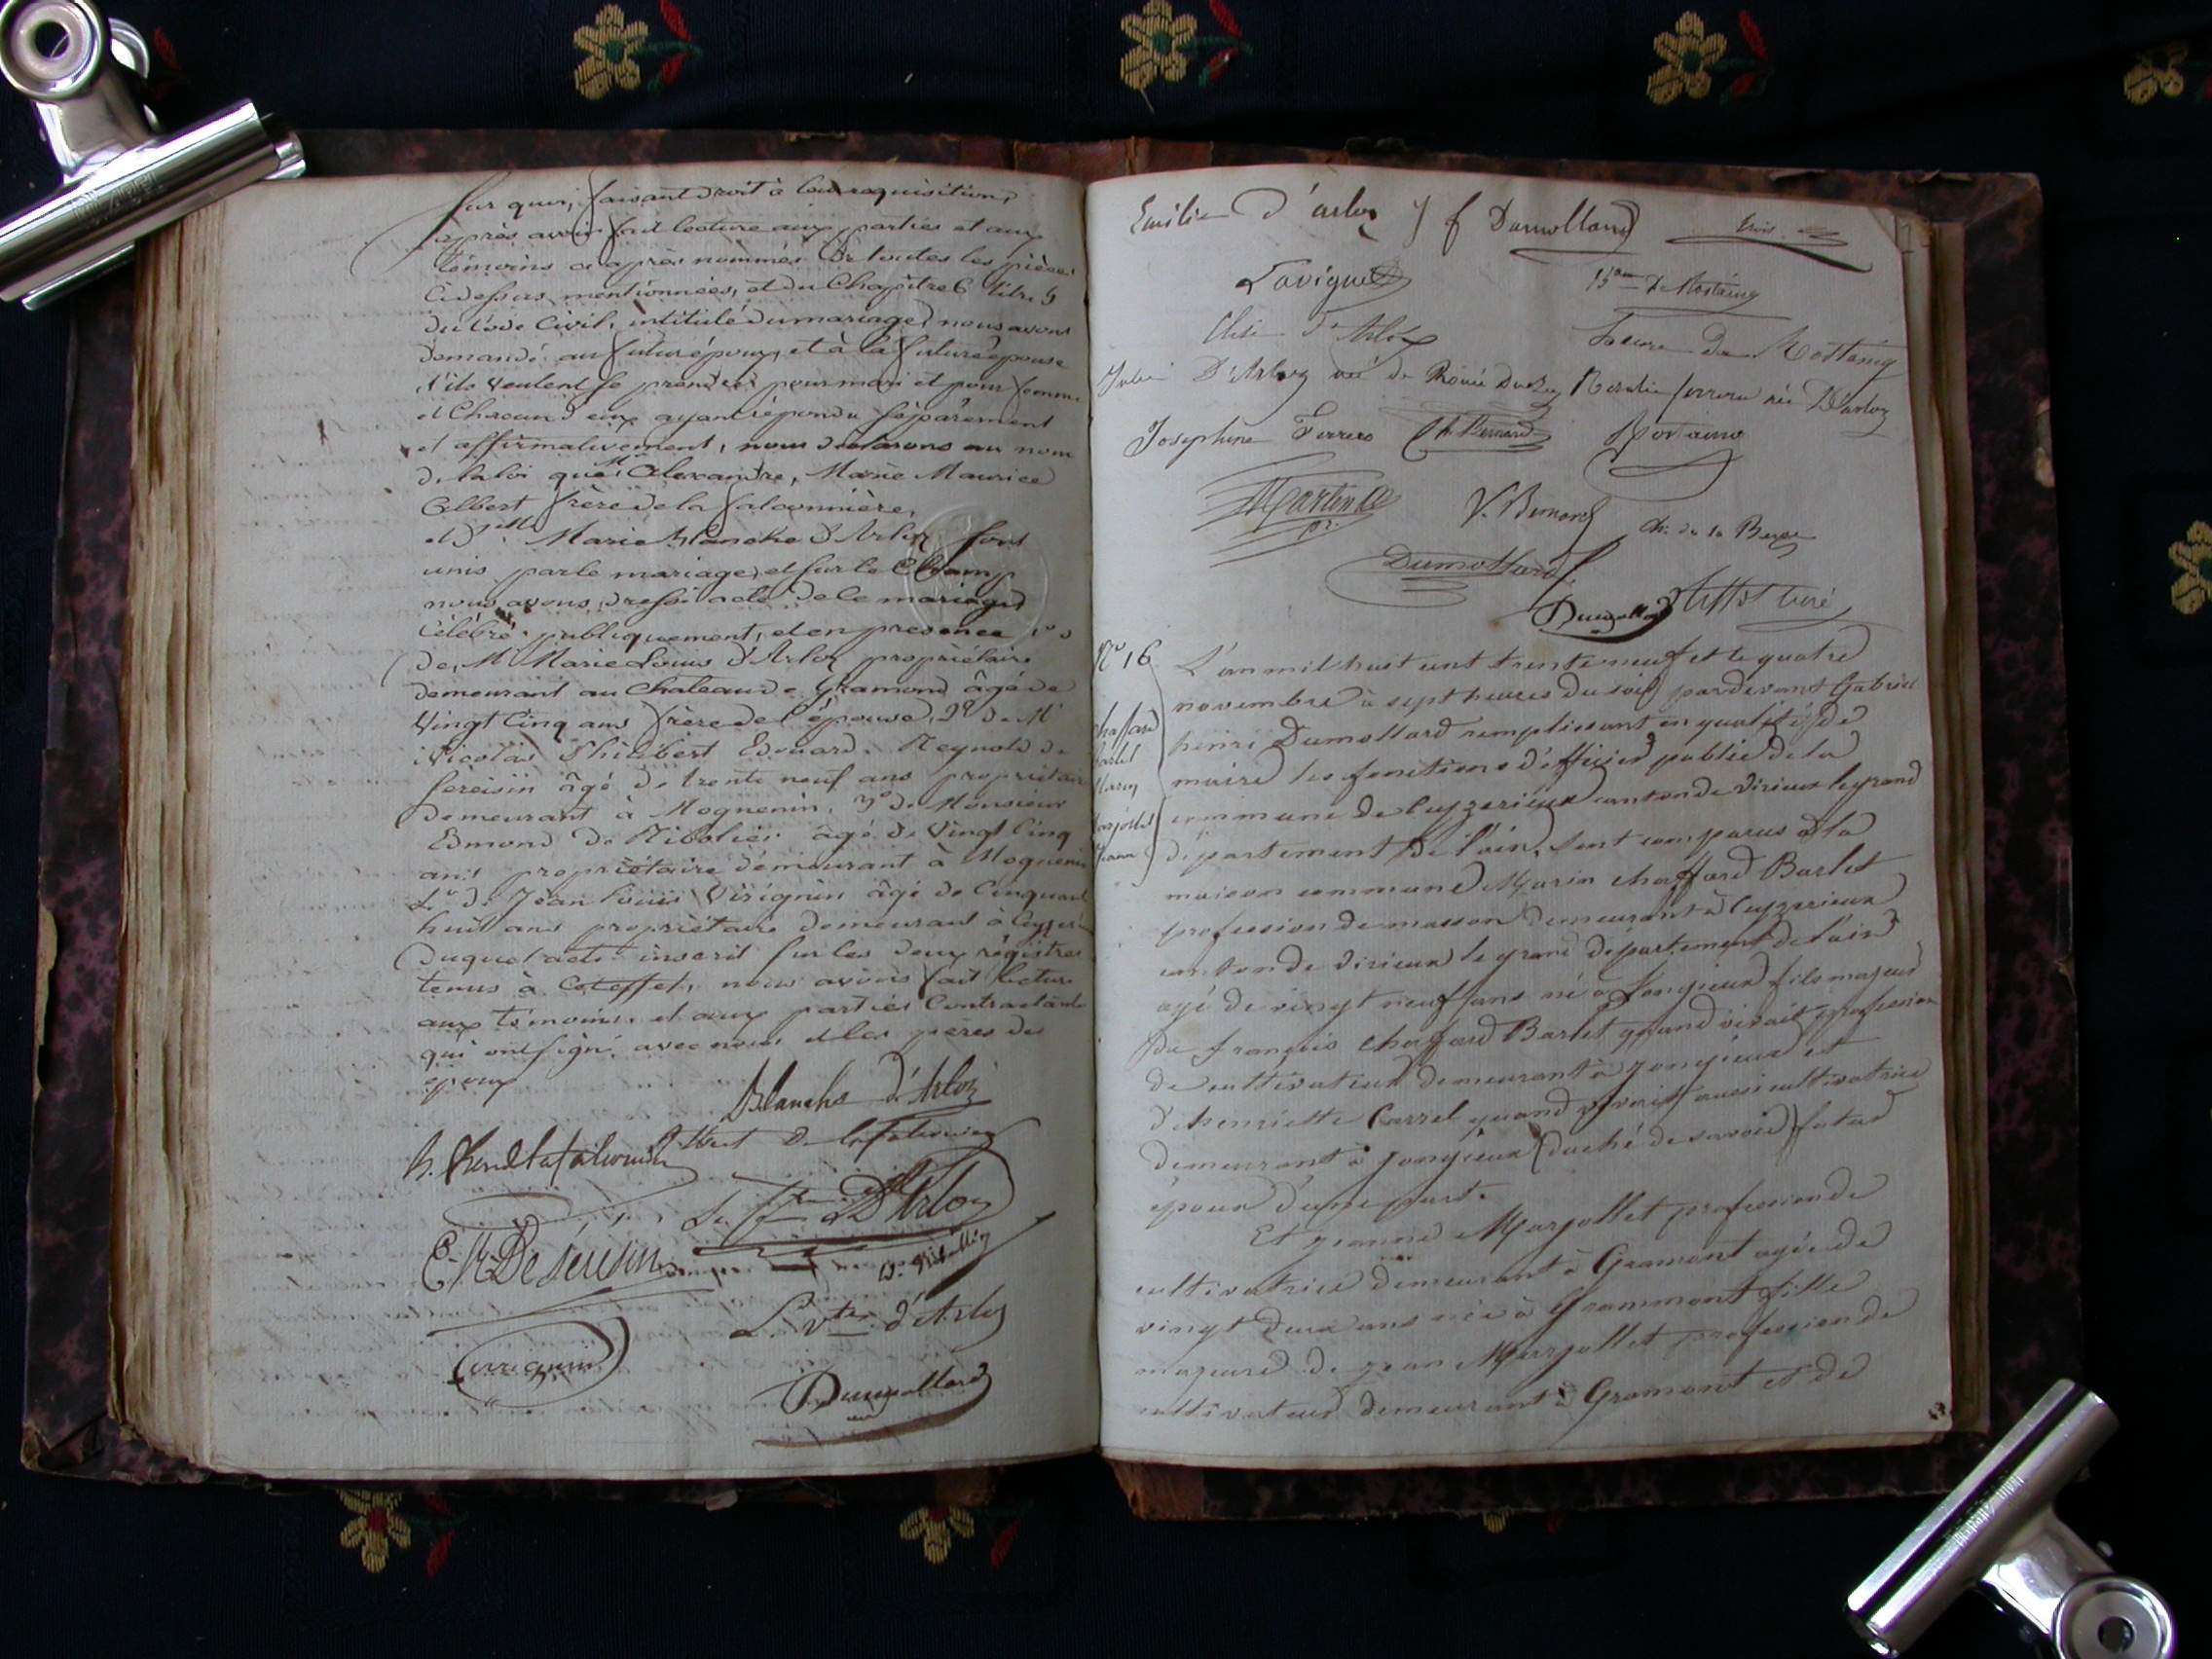 Sur quoi, faisant droit à leur requisition,
après avoir fait lecture aux parties et aux
témoins ci après nommés De toutes les pièces
Cidessus mentionnées, et du Chapitre 6 titre 5
du Code Civil, intitulé du mariage, nous avons
demandé au futur époux, et à la future épouse
s'ils veulent se prendre pour mari et pour femme
et Chacun d'eux ayant répondu séparément
et affirmativement, nous déclarons au nom
de la loi que Mr Alexandre, Marie Maurice
Albert frère de la falconnière,
et Delle Marie blanche d'Arloz sont
unis par le mariage, et sur le Champ
nous avons dressé acte de ce mariage
Célébré publiquement, et en presence 1o
de Mr Marie Louis d'Arloz propriétaire
demeurant au Chateau de Gramond âgé de
Vingt Cinq ans frère de l'épouse, 2o de Mr
Nicolas Philibert Edouard Reynold de
Séresin âgé de trente neuf ans propriétaire
demeurant à Mognenin, 3o de Monsieur
Edmond de Ribolier âgé de Vingt Cinq
ans propriétaire demeurant à Mognenin
4o de Jean Louis Virignin âgé de Cinquante
huit ans propriétaire demeurant à Ceyzeri
Duquel acte inscrit sur les deux régistres
tenus à Cet effet, nous avons fait lecture
aux témoins, et aux parties Contractante
qui ont signé avec nous et les peres des
epoux
Blanche d'Arloz
Albert de la falconnière
D'Arloz
De Séresin
L. Vte d'Arloz
Virignin
Dumollard
Emilie d'arloz f Dumollard trois
Lavigne Bon de Mostaing
d'Arloz de Mostaing
D'Arloz née de Rosalie ferrero née D'arloz
Josephine Ferrero Ch. Bernard
Martin
V. Bernard Ch. de la
Dumollard
Dumollard curé
No 16
chaffard
Barlet
Marin
Marjollet
L'an mil huit cent trente neuf et le quatre
novembre à sept heures du soir pardevant Gabriel
henri Dumollard remplissant en qualité de
maire les fonctions d'officier public de la
commune de Ceyzerieux canton de Virieux le grand
département de l'ain, sont comparus à la
maison commune Marin chaffard Barlet
profession de masson demeurant à Ceyzerieux
canton de virieux le grand département de l'ain
agé de vingt neuf ans né à Jongieux fils majeur
de françois chaffard Barlet quand vivait profession
de cultivateur demeurant à Jongieux et
d'henriette Carrel quand vivait aussi cultivatrice
demeurant à Jongieux (duché de savoie) futur
époux d'une part.
Et jeanne Marjollet profession de
cultivatrice demeurant à Gramont agée de
vingt deux ans née à Grammont fille
majeure de jean Marjollet profession de
cultivateur demeurant à Gramont et de